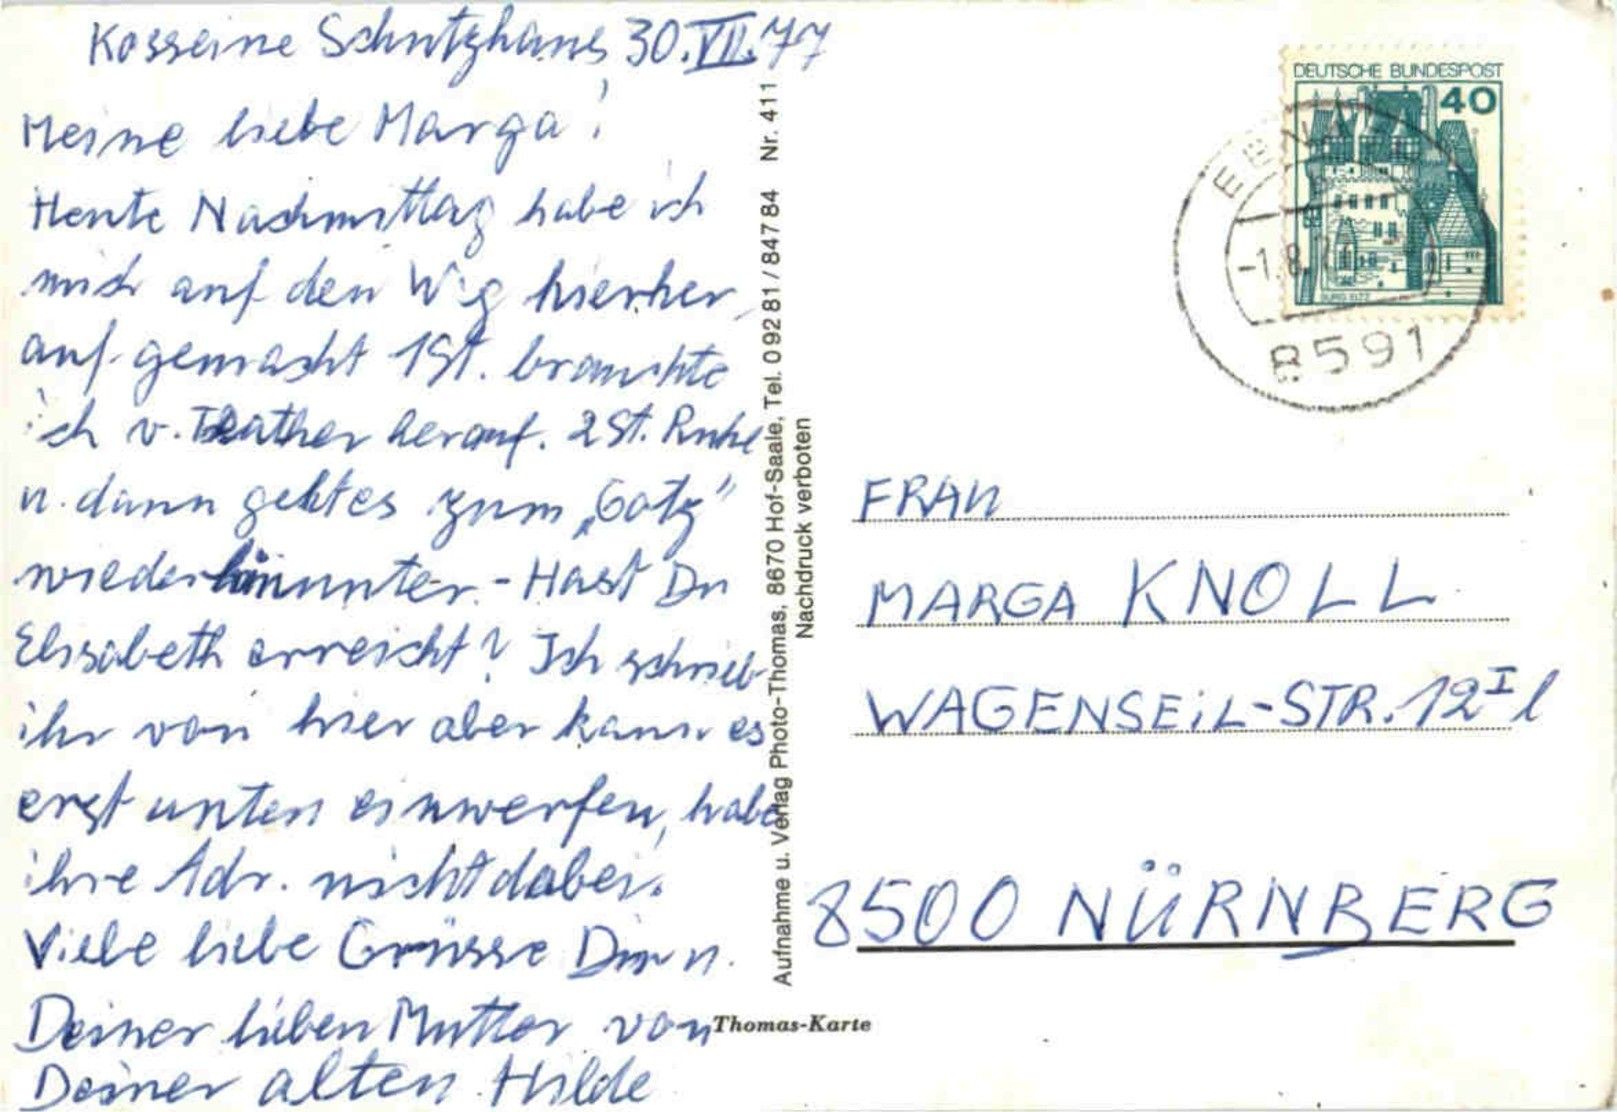 Kösseine Schutzhaus 30.VII.77
Meine liebe Marga!
Heute Nachmittag habe ich
mich auf den Weg hierher
auf gemacht 1 St. brauchte
ich v. herauf. 2 St. Ruhe
u. dann geht es zum „Götz"
wieder hinunter. - Hast Du
Elisabeth erreicht? Ich schrieb
ihr von hier aber kann es
erst unten einwerfen, habe
ihre Adr. nicht dabei.
Viele liebe Grüsse Dir u.
Deiner lieben Mutter von
Deiner alten Hilde
Aufnahme u. Verlag Photo-Thomas, 8670 Hof-Saale, Tel. 0 92 81 / 847 84 Nr. 411
Nachdruck verboten
Thomas-Karte
DEUTSCHE BUNDESPOST
40
BURG ELTZ
-1.8.77
8591
FRAU
MARGA KNOLL
WAGENSEIL-STR. 12 I l
8500 NÜRNBERG